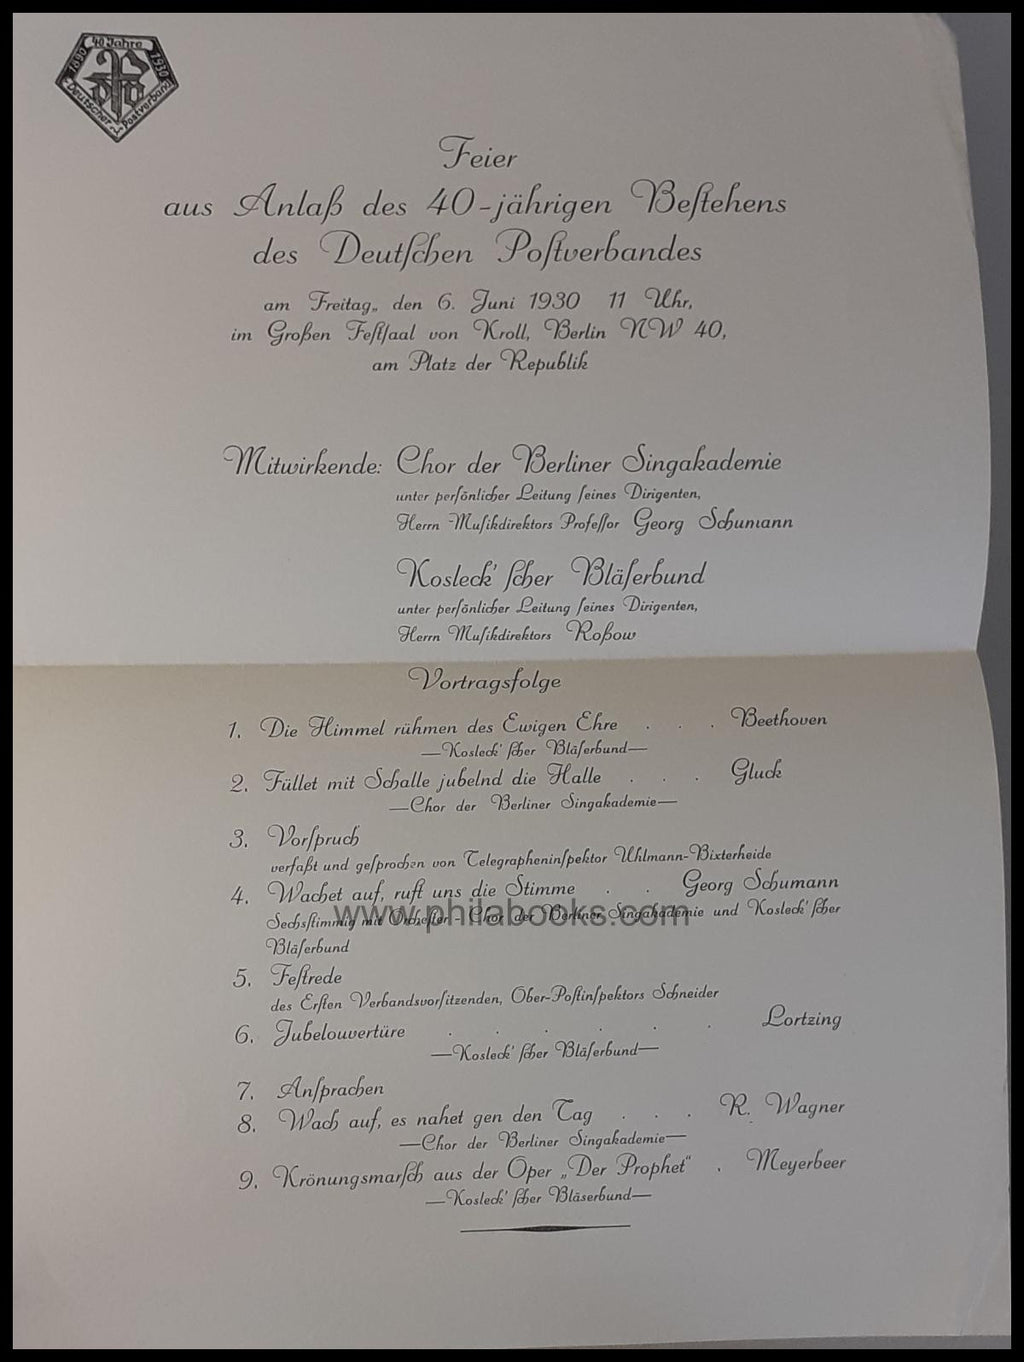 40 Jahre
1890 1930
Deutscher Postverband
Feier
aus Anlaß des 40-jährigen Beſtehens
des Deutſchen Poſtverbandes
am Freitag, den 6. Juni 1930 11 Uhr,
im Großen Feſtſaal von Kroll, Berlin NW 40,
am Platz der Republik
Mitwirkende: Chor der Berliner Singakademie
unter perſönlicher Leitung ſeines Dirigenten,
Herrn Muſikdirektors Profeſſor Georg Schumann
Kosleck' ſcher Bläſerbund
unter perſönlicher Leitung ſeines Dirigenten,
Herrn Muſikdirektors Roßow
Vortragsfolge
1. Die Himmel rühmen des Ewigen Ehre . . . Beethoven
—Kosleck' ſcher Bläſerbund—
2. Füllet mit Schalle jubelnd die Halle . . . Gluck
—Chor der Berliner Singakademie—
3. Vorſpruch
verfaßt und geſprochen von Telegrapheninſpektor Uhlmann-Bixterheide
4. Wachet auf, ruft uns die Stimme . . Georg Schumann
Sechsſtimmig mit Orcheſter - Chor der Berliner Singakademie und Kosleck' ſcher
Bläſerbund
www.philabooks.com
5. Feſtrede
des Erſten Verbandsvorſitzenden, Ober-Poſtinſpektors Schneider
6. Jubelouvertüre . . . . . . Lortzing
—Kosleck' ſcher Bläſerbund—
7. Anſprachen
8. Wach auf, es nahet gen den Tag . . . R. Wagner
—Chor der Berliner Singakademie—
9. Krönungsmarſch aus der Oper „Der Prophet“ . Meyerbeer
—Kosleck' ſcher Bläserbund—